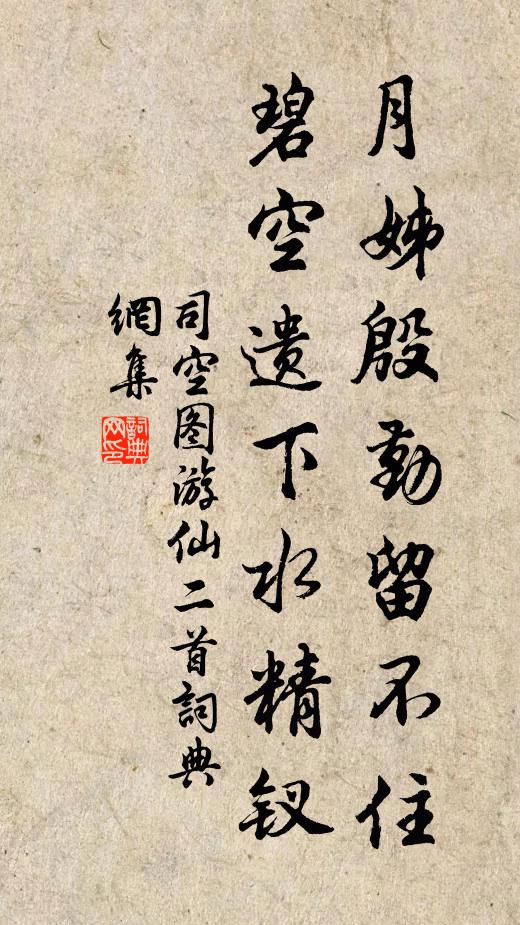 月姊殷勤留不住
碧空遗下水精钗
司空图游仙二首詞典
網集
詞典
网印